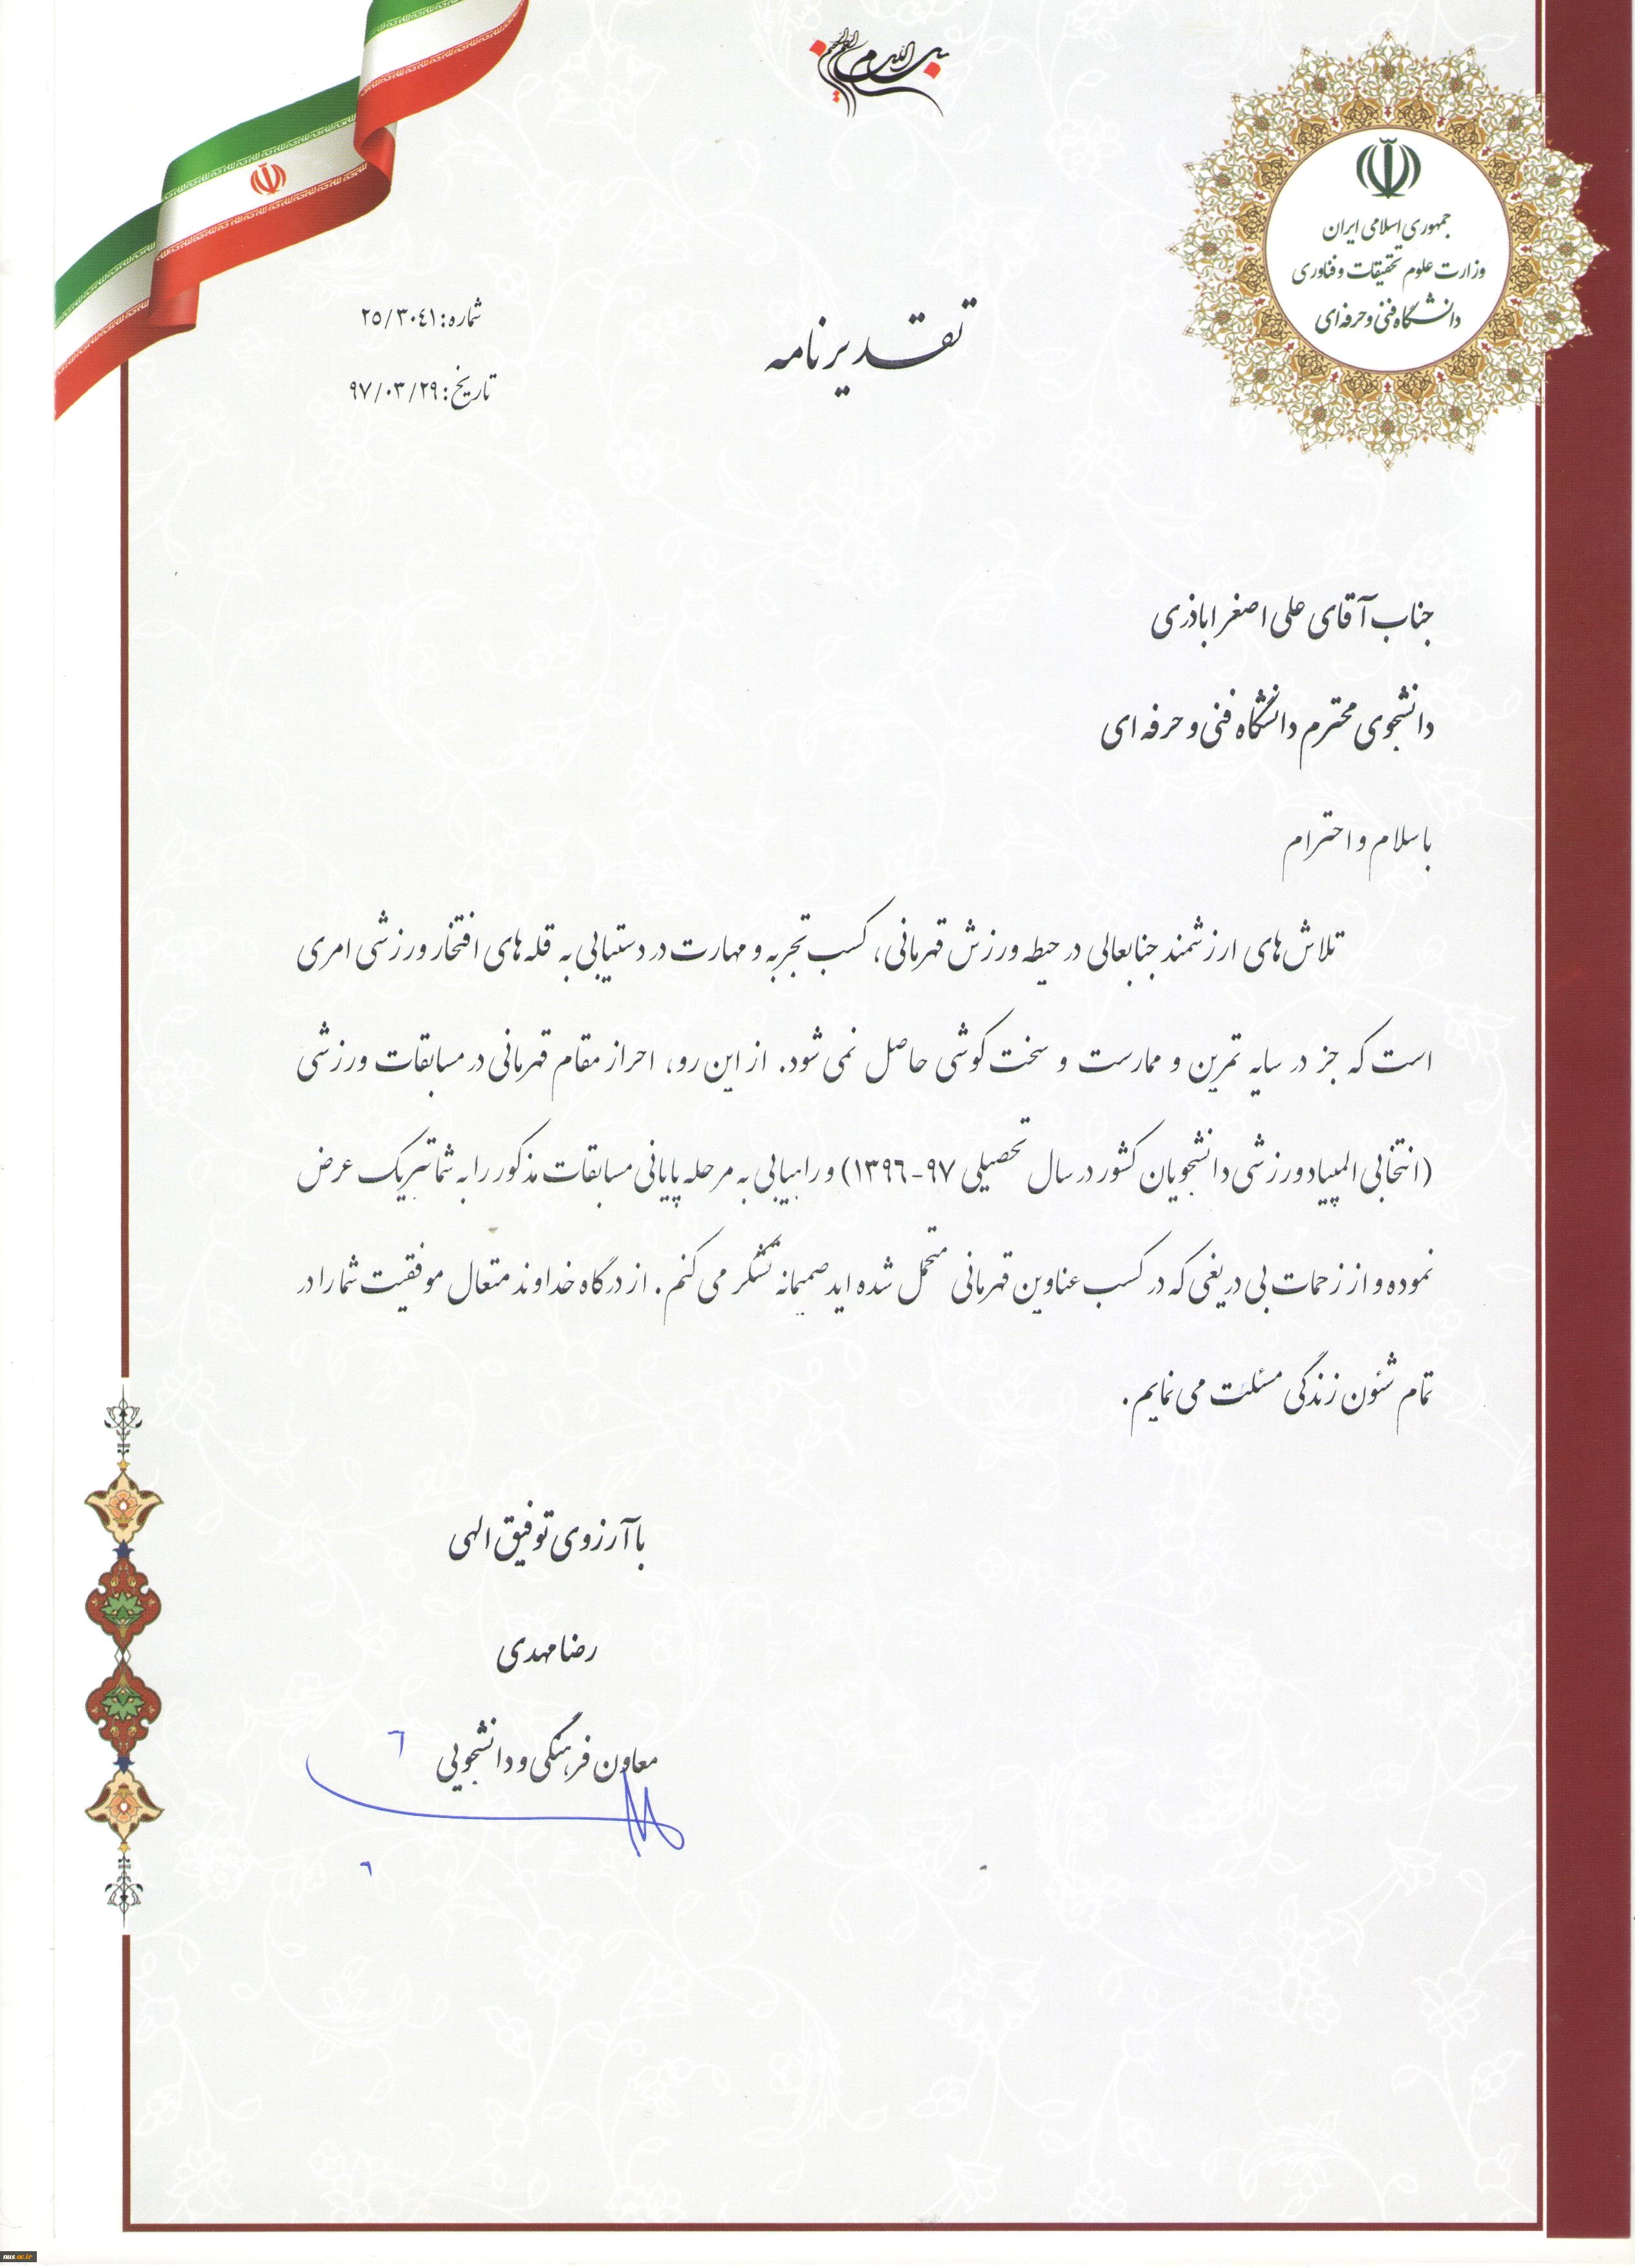 بسم الله الرحمن الرحیم
جمهوری اسلامی ایران
وزارت علوم تحقیقات و فناوری
دانشگاه فنی و حرفه ای
شماره: ۲۵/۳۰۴۱
تاریخ: ۹۷/۰۳/۲۹
تقدیرنامه
جناب آقای علی اصغر اباذری
دانشجوی محترم دانشگاه فنی و حرفه ای
با سلام و احترام
تلاش‌های ارزشمند جنابعالی در حیطه ورزش قهرمانی، کسب تجربه و مهارت در دستیابی به قله‌های افتخار ورزشی امری
است که جز در سایه تمرین و ممارست و سخت کوشی حاصل نمی شود. از این رو، احراز مقام قهرمانی در مسابقات ورزشی
(انتخابی المپیاد ورزشی دانشجویان کشور در سال تحصیلی ۹۷-۱۳۹۶) و راهیابی به مرحله پایانی مسابقات مذکور را به شما تبریک عرض
نموده و از زحمات بی دریغی که در کسب عناوین قهرمانی متحمل شده اید صمیمانه تشکر می کنم. از درگاه خداوند متعال موفقیت شما را در
تمام شئون زندگی مسئلت می نمایم.
با آرزوی توفیق الهی
رضا مهدی
معاون فرهنگی و دانشجویی
nus.ac.ir